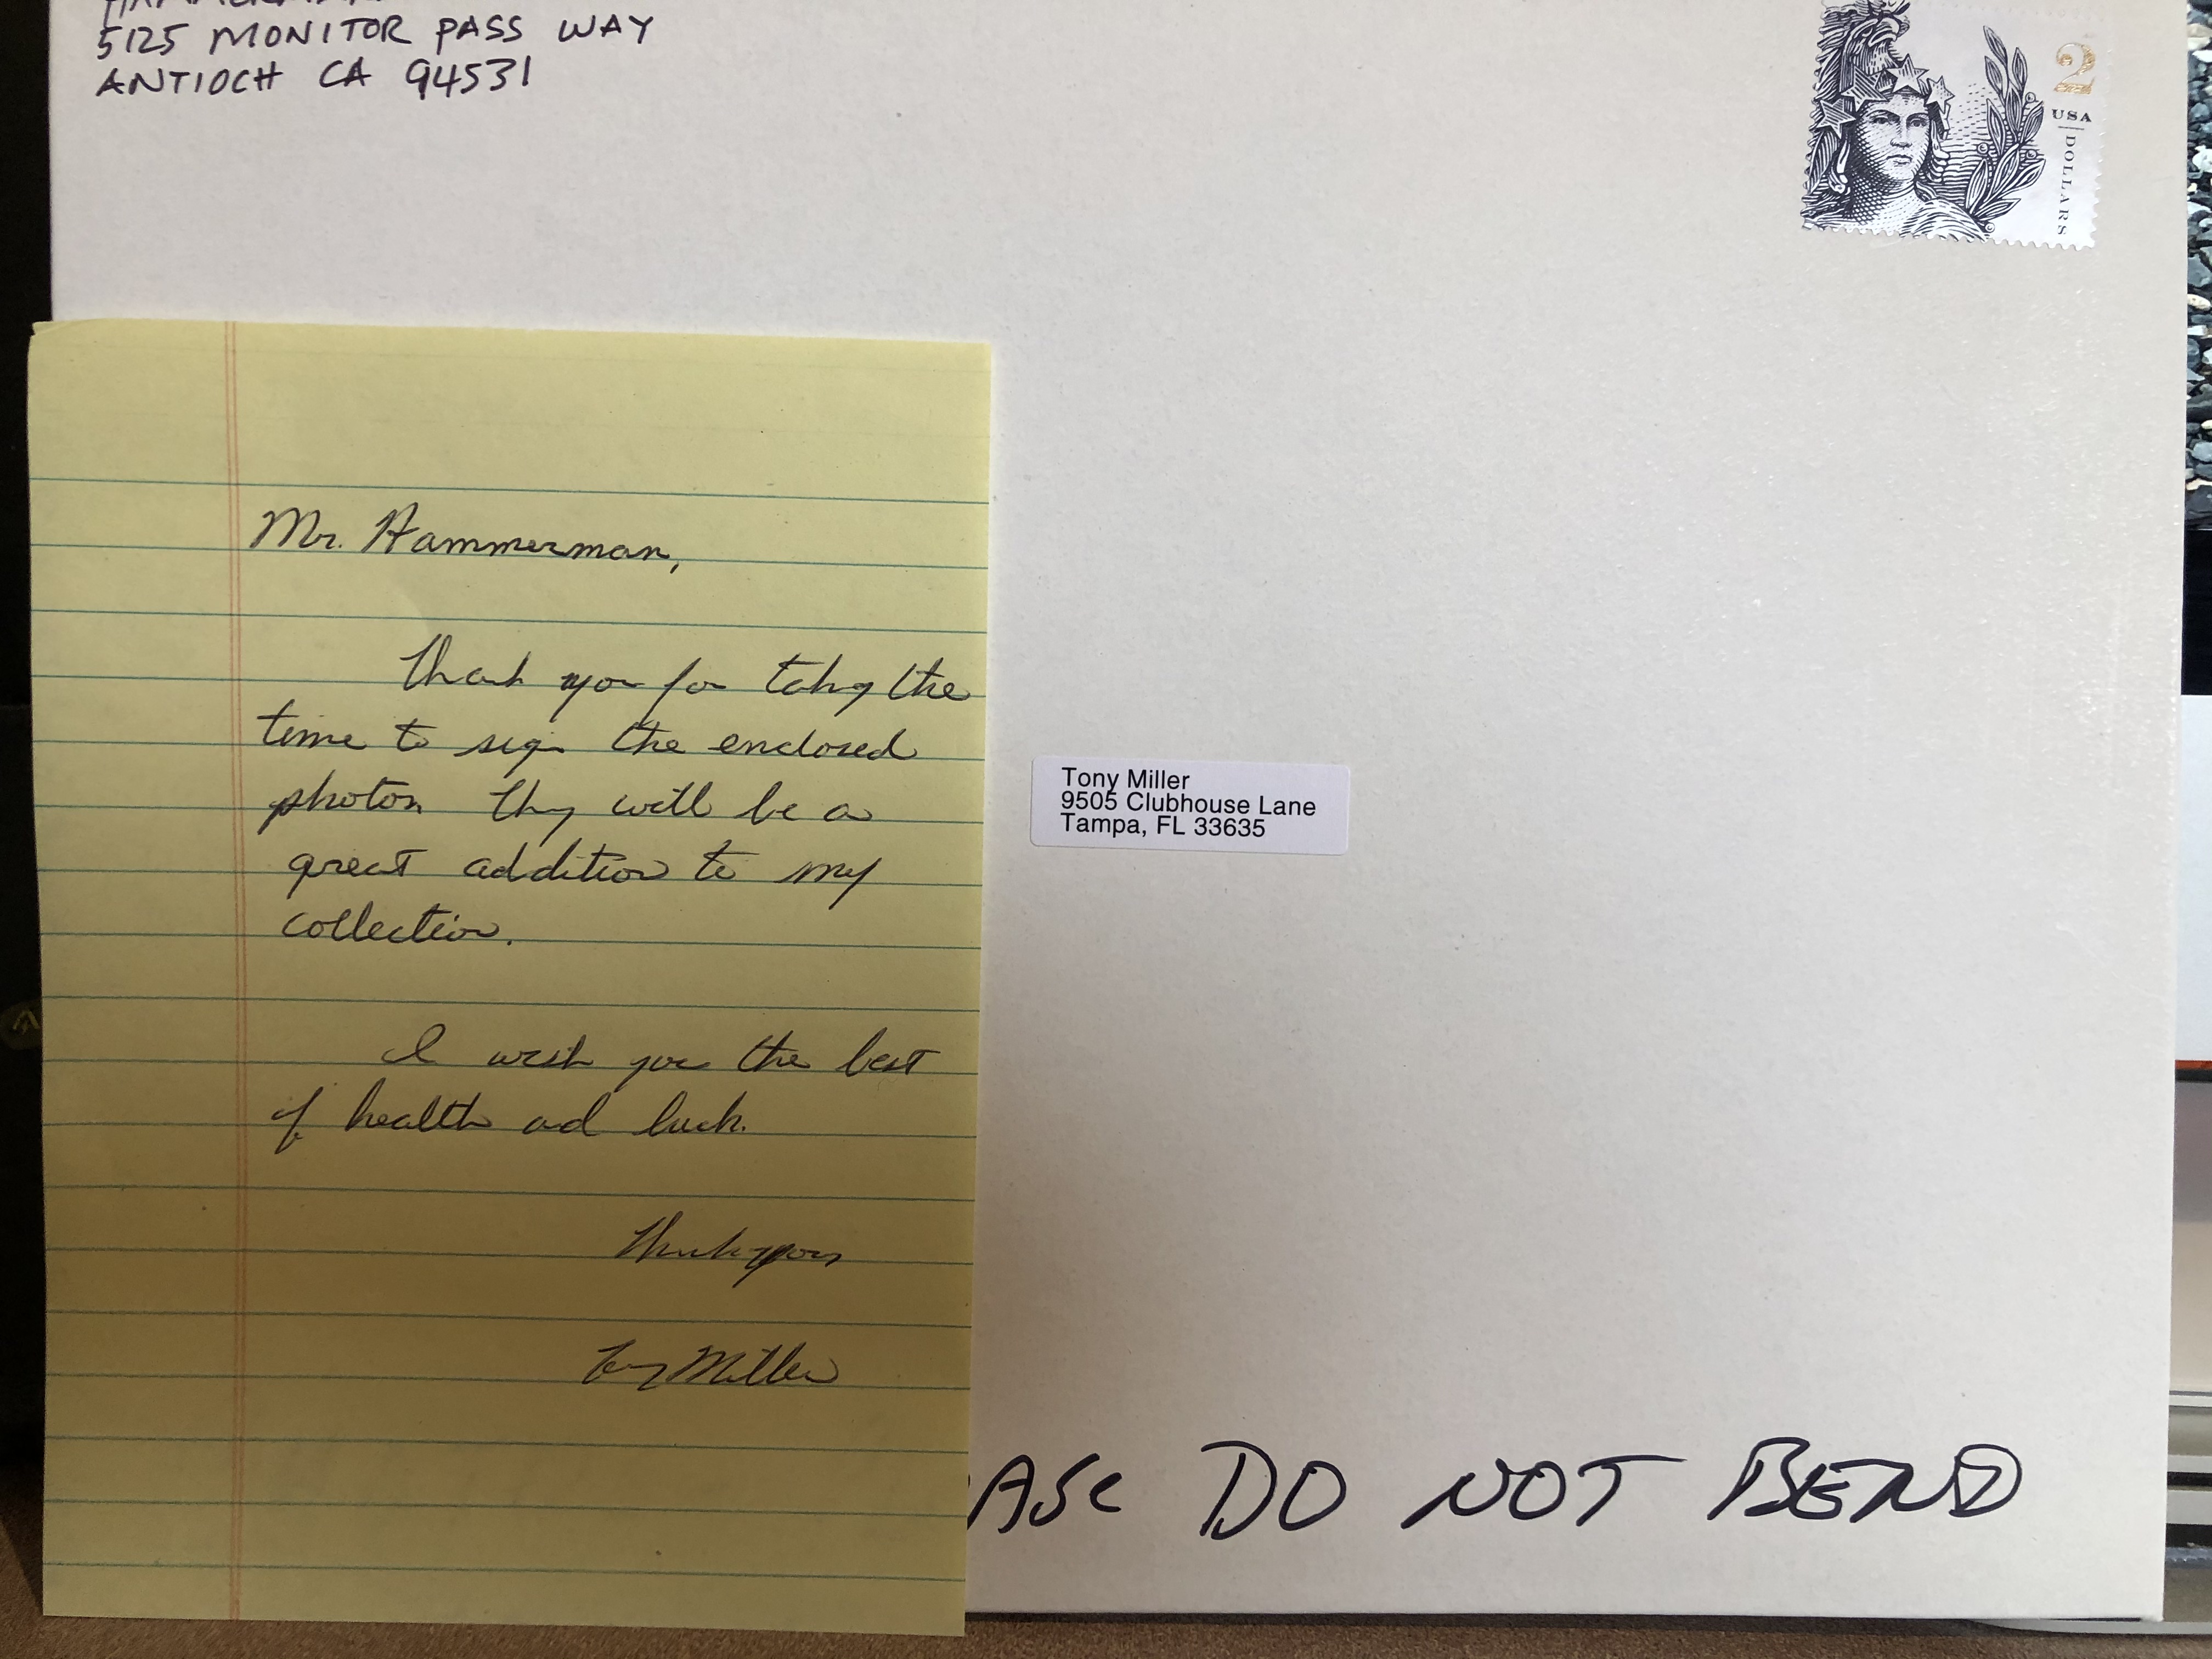 5125 MONITOR PASS WAY
ANTIOCH CA 94531
2
USA
DOLLARS
Mr. Hammerman,
Thank you for taking the
time to sign the enclosed
photos. They will be a
great addition to my
collection.
I wish you the best
of health and luck.
Thank you
Tony Miller
Tony Miller
9505 Clubhouse Lane
Tampa, FL 33635
ASE DO NOT BEND